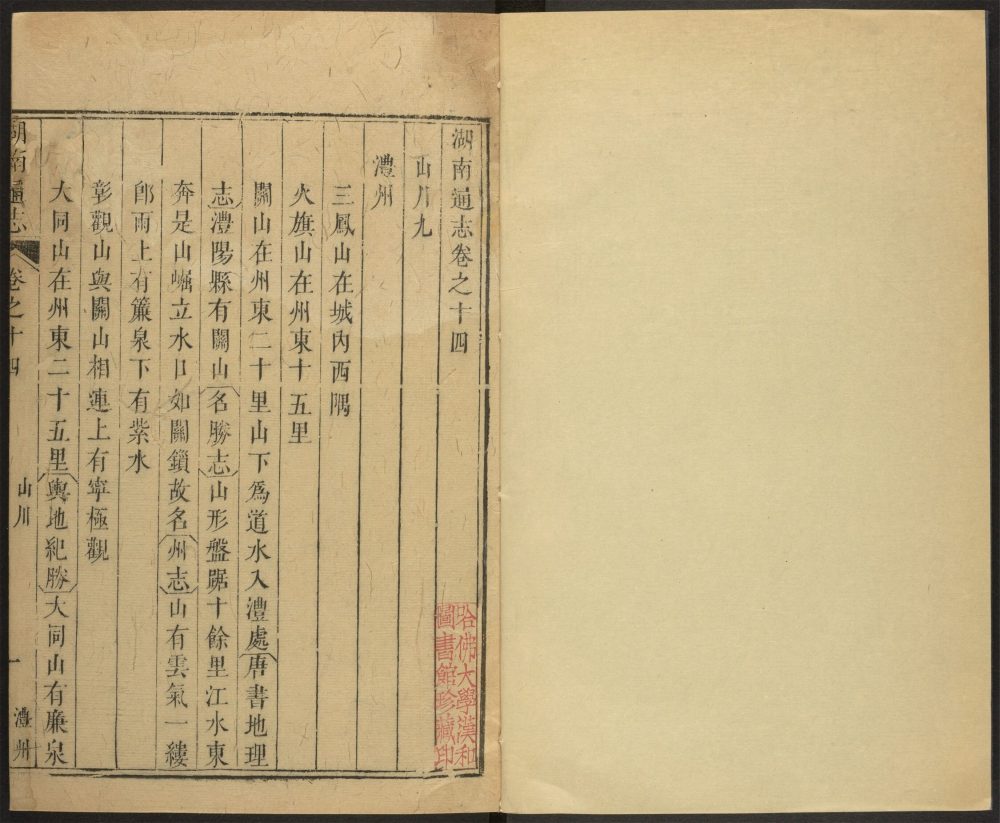 湖南通志卷之十四
山川九
澧州
三鳳山在城內西隅
火旗山在州東十五里
關山在州東二十里山下爲道水入澧處唐書地理
志澧陽縣有關山名勝志山形盤踞十餘里江水東
奔是山崛立水口如關鎖故名州志山有雲氣一縷
卽雨上有簾泉下有紫水
彰觀山與關山相連上有寧極觀
大同山在州東二十五里輿地紀勝大同山有廉泉
湖南通志 卷之十四 山川 一 澧州
哈佛大學漢和
圖書館珍藏印